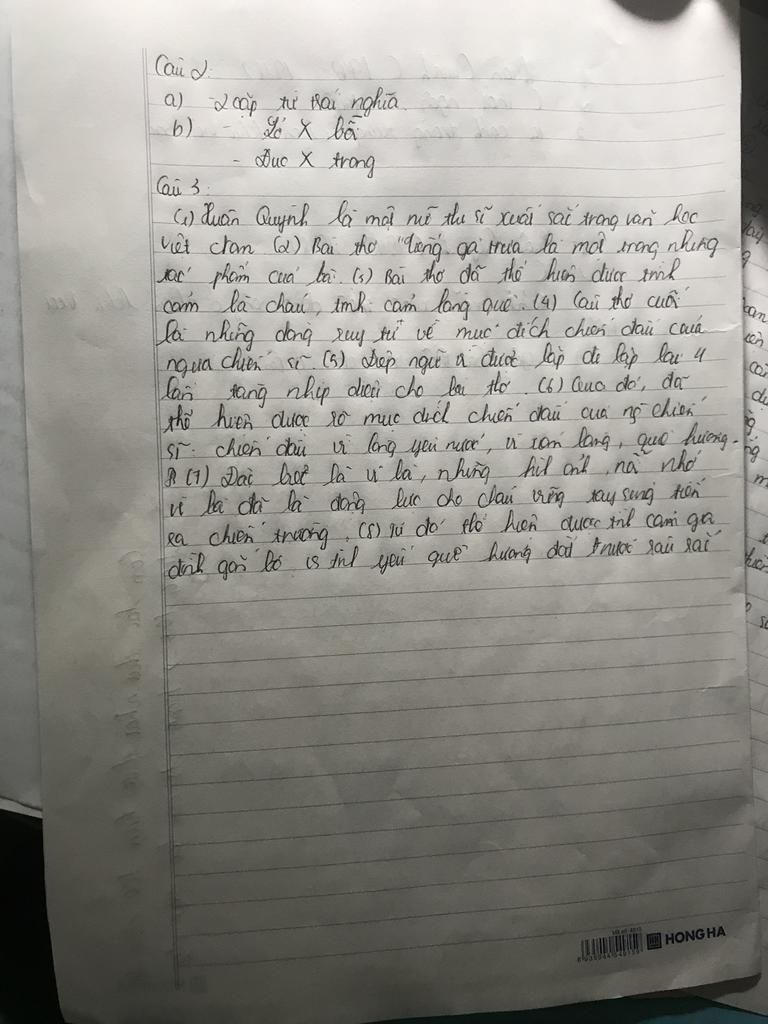 Câu 2:
a) - 2 cặp từ trái nghĩa.
b) - X bã
- Đục X trong
Câu 3:
(1) Xuân Quỳnh là một nữ thi sĩ xuất sắc trong văn học
việt (2) Bài thơ "tiếng gà trưa là một trong những
tác phẩm của bà. (3) Bài thơ đã thể hiện được tình
cảm bà cháu, tình cảm làng quê. (4) Câu thơ cuối
là những dòng suy tư về mục đích chiến đấu của
người chiến sĩ. (5) Điệp ngữ vì được lặp đi lặp lại 4
lần tăng nhịp điệu cho bài thơ. (6) Qua đó, đã
thể hiện được rõ mục đích chiến đấu của ng chiến
sĩ: chiến đấu vì lòng yêu nước, vì xóm làng, quê hương.
(7) Đặc biệt là vì bà, những hình ảnh, nhớ
vì bà đã là động lực cho cháu vững tay súng tiến
ra chiến trường. (8) Từ đó thể hiện được tình cảm gia
đình gắn bó tình yêu quê hương đất nước sâu sắc
HONG HA